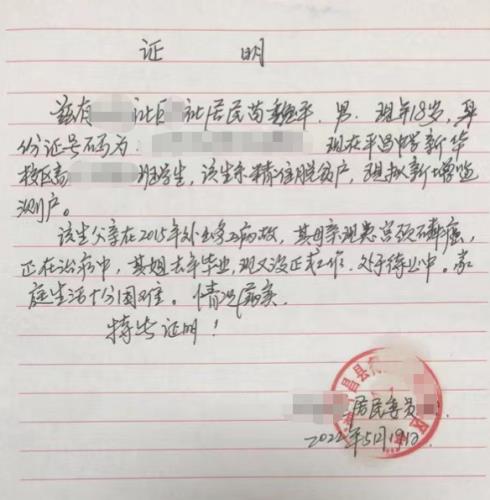 证 明
兹有 社区 社居民苗 平，男，现年18岁，身
份证号码为： 现在平昌中学新华
校区高 班学生，该生系精准脱贫户，现拟新增监
测户。
该生父亲在2015年外出务工病故，其母亲现患宫颈磷癌，
正在治病中，其姐去年毕业，现又没正式工作，处于待业中。家
庭生活十分困难。情况属实。
特此证明！
昌县
居民委员
2022年5月19日